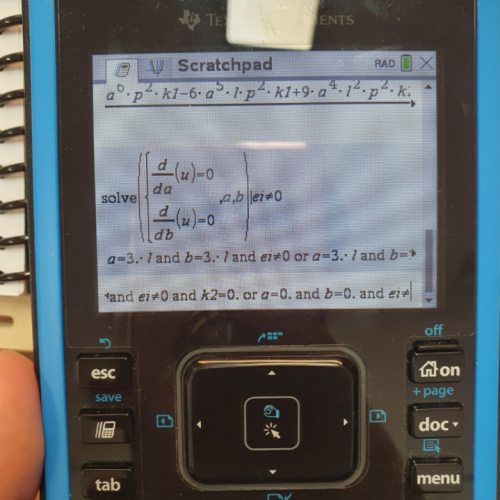 TEXAS INSTRUMENTS
Scratchpad RAD
a⁶·p²·k1-6·a⁵·l·p²·k1+9·a⁴·l²·p²·k
solve({d/da(u)=0, d/db(u)=0},a,b)|ei≠0
a=3.·l and b=3.·l and ei≠0 or a=3.·l and b=
and ei≠0 and k2=0. or a=0. and b=0. and ei≠
off
esc
on
save
+page
doc
tab
menu